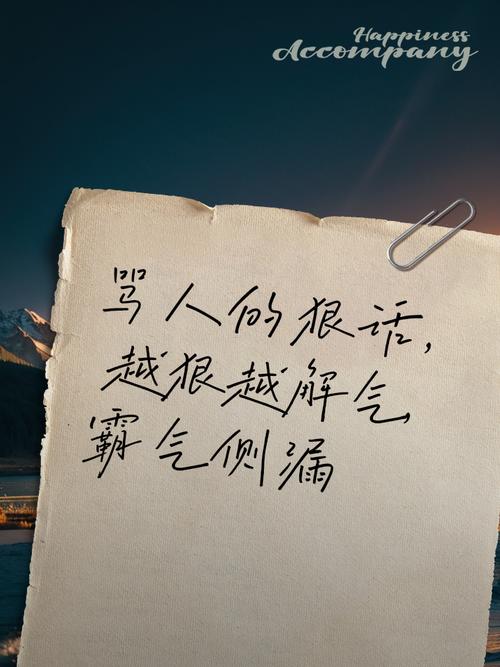 Happiness
Accompany
骂人的狠话,
越狠越解气,
霸气侧漏